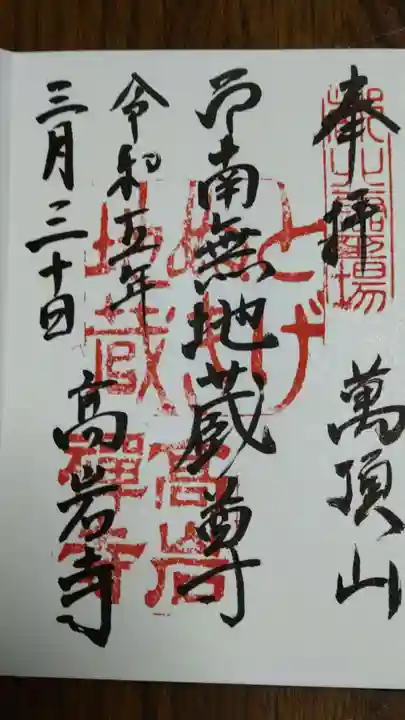 奉拝
萬頂山
南無地蔵尊
令和五年
三月三十日
高岩寺
とげ
ぬき
地蔵
高岩
禅寺